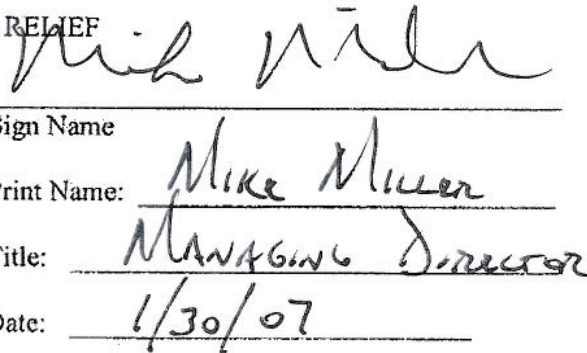 RELIEF
Mike Miller
Sign Name
Print Name: Mike Miller
Title: Managing Director
Date: 1/30/07